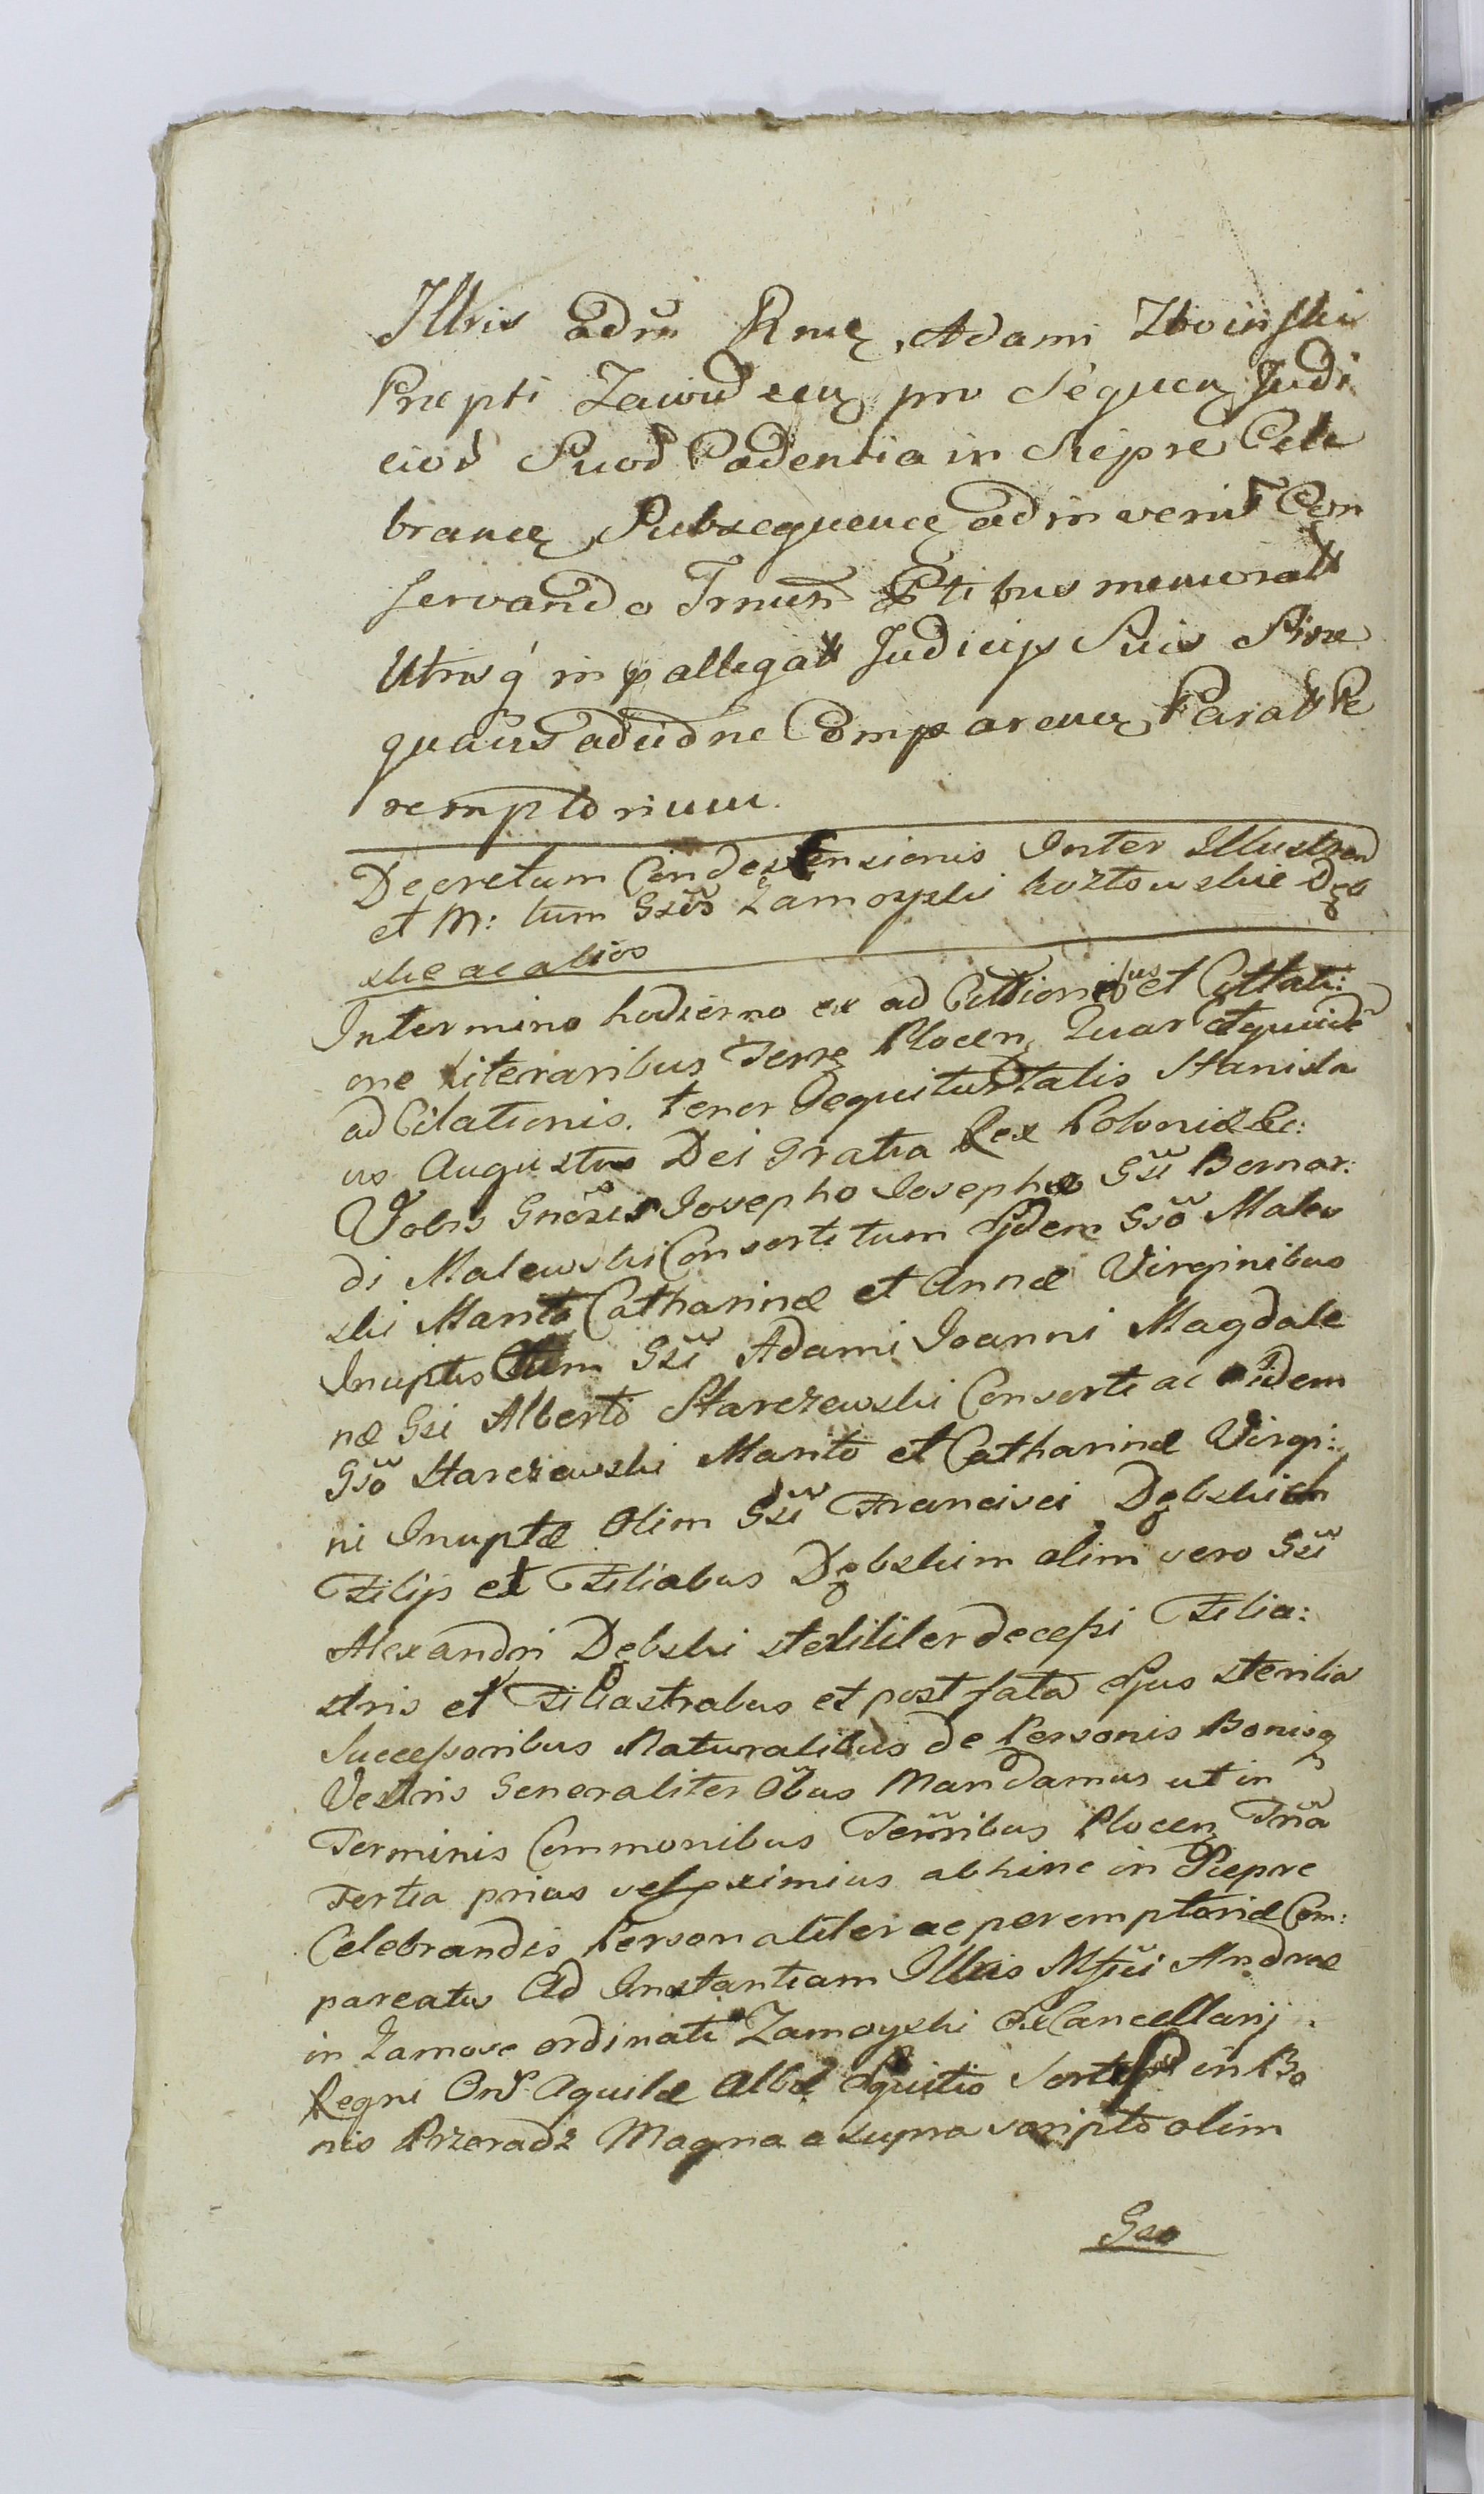 Illris adm Rndę, Adami Zboinski
Prępti Zawid cuę pro Sequen Judi
ciod Suod Cadentia in Siepre Cele
brancę, Subsequence ad inveniđ Con
servando Trnum Ptibus memoratt
Utrisq in pallegatt Judicijs Suis Sine
quavis aducone Comparencę Parat Pe
remptorium.
Decretum Condescensionis Inter Illustrem
et M: tum Gsos Zamoyski kozłowskie Dęb
skie ac alios
In termino hodierno ex ad Cittionibus et Cittati:
one Literaribus Terrę Plocen, Quar et quidē
ad Citationis. tenor Sequitur talis Stanisla
us Augustus Dei gratia Rex Poloniæ &c:
Vobis Gnosis Josepho Josephæ Gsi Bernar:
di Malewski Consorti tum Ejdem Gso Malew
ski Marito Catharinæ et Annæ Virginibus
Inuptis tum Gsi Adami Joanni Magdale
næ Gsi Alberti Starczewski Consorti ac eidem
Gso Starczewski Marito et Catharinæ Virgi:
ni Inuptæ olim Gsi Francisci Dębskich
Filijs et Filiabus Dębskim olim vero Gsi
Alexandri Dębski steliliter decessi Filia:
stris et Filiastrabus et post fata Ejus sterilia
Successoribus Naturalibus de Personis Bonisq
Vestris Generaliter Obus Mandamus ut in
Terminis Commonibus Terribus Plocen Tria
Tertia prius vel pximius abhinc in Siepre
Celebrandis Personaliter ac peremptorie Com:
pareatis Ad Instantiam Illris Mfici Andreæ
in Zamosc ordinati Zamoyski Ex Cancellarij
Regni Ord Aquilæ Albæ Equitis Sortis in Bo
nis Przeradz Magna a supra scripto olim
Gso